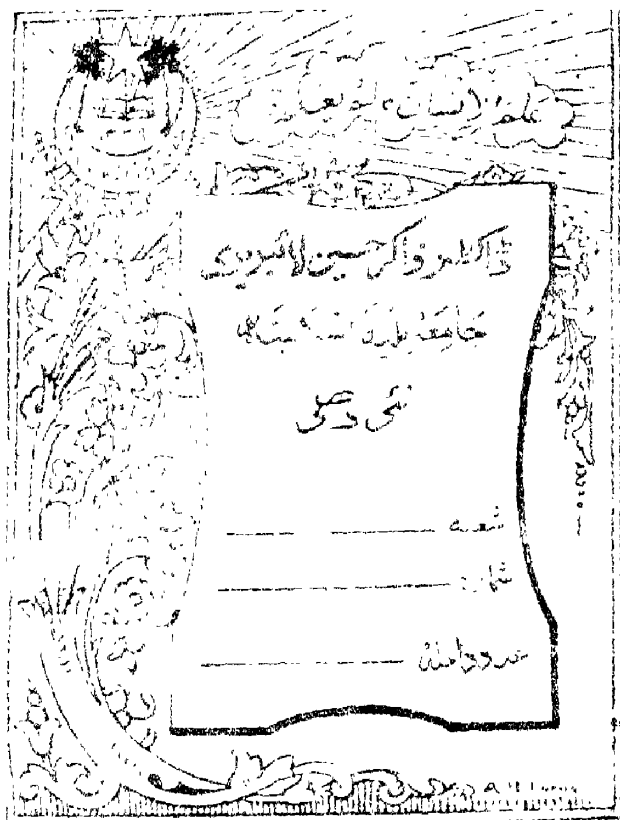 علم الانسان مالم يعلم
ڈاکٹر ذاکر حسین لائبریری
جامعہ ملیہ اسلامیہ
نئی دہلی
شعبہ
شمارہ
عدد داخلہ